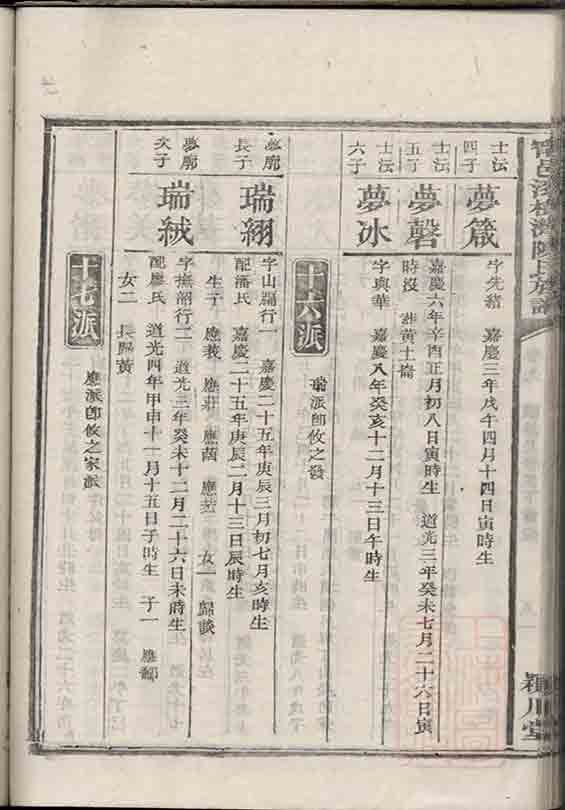 陳氏族譜
潁川堂
士沄
四子
夢箴
字先緒 嘉慶三年戊午四月十四日寅時生
士沄
五子
夢磬
嘉慶六年辛酉正月初八日寅時生 道光三年癸未七月二十六日寅
時沒 黄土崙
士沄
六子
夢冰
字與華 嘉慶八年癸亥十二月十三日午時生
十六派
瑞派即攸之發
夢廓
長子
瑞翎
字山 行一 嘉慶二十五年庚辰三月初七月亥時生
配潘氏 嘉慶二十五年庚辰二月十三日辰時生
生子 應莪 應莊 應菡 女一 歸談
夢廓
次子
瑞絨
字撫韶行二 道光三年癸未十二月二十六日未時生
配廖氏 道光四年甲申十一月十五日子時生 子一 應
女二 長歸黄
十七派
應派即攸之家派